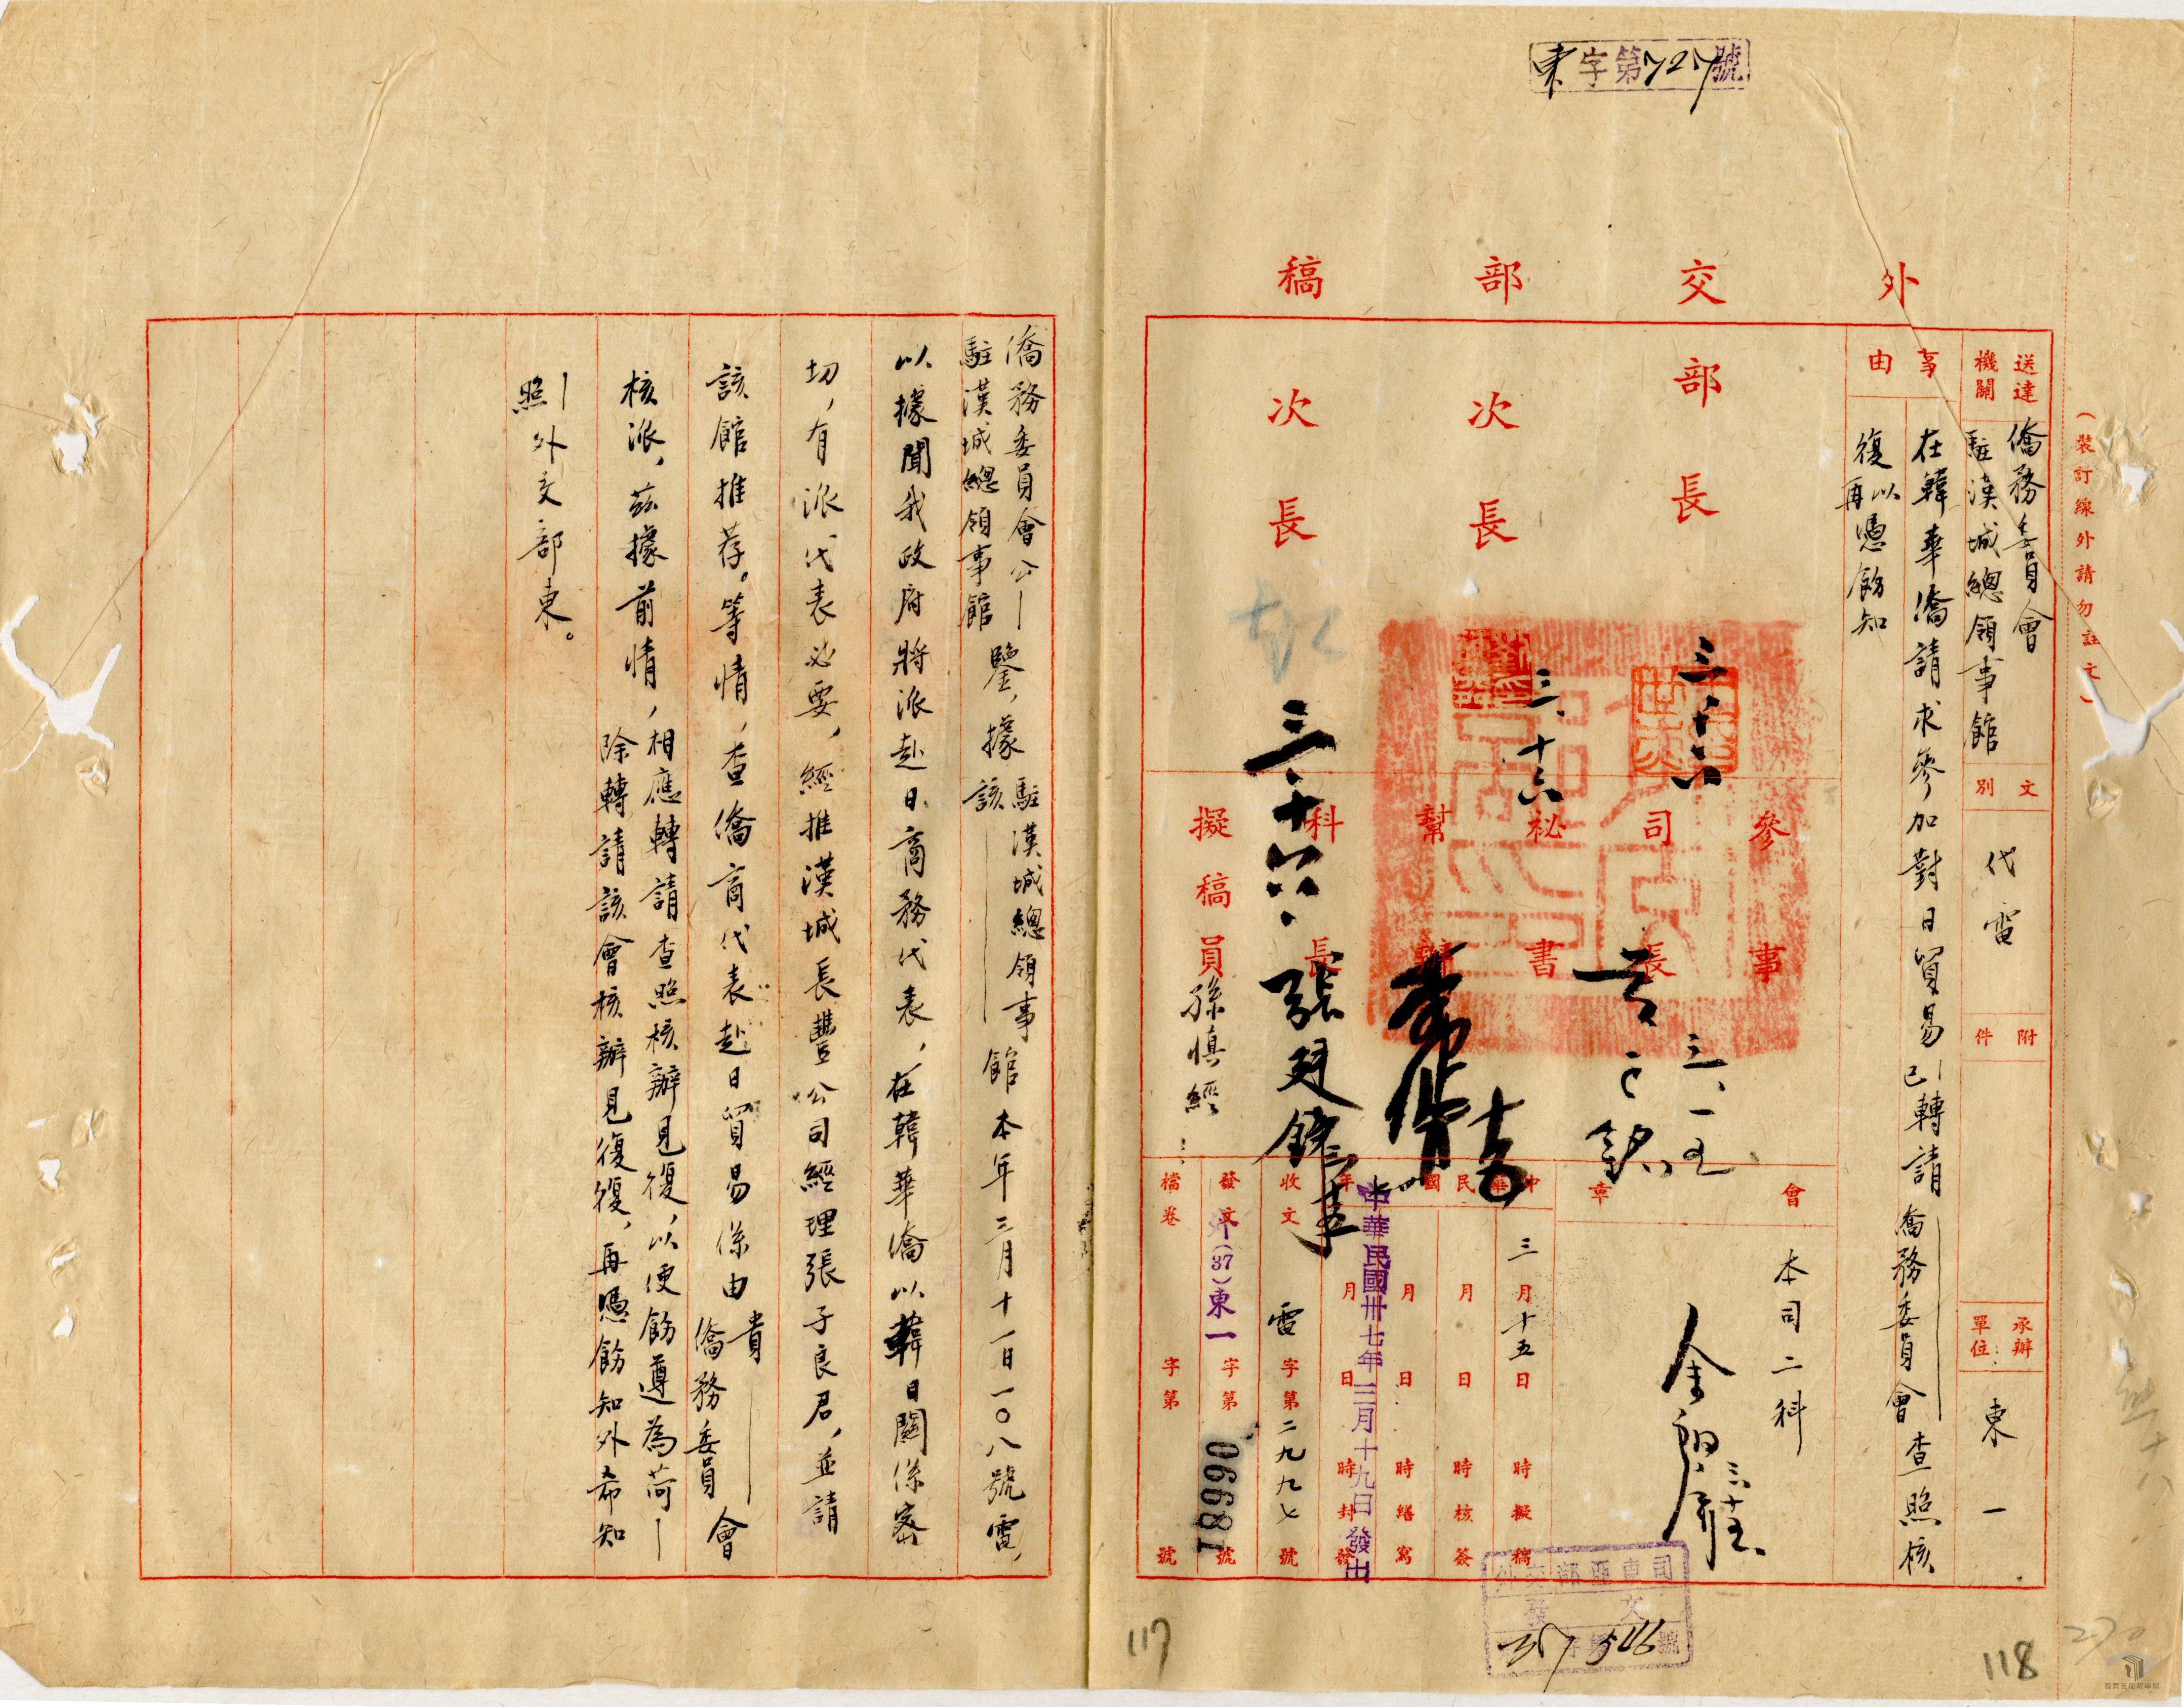 東字第727號
外交部稿
（裝訂線外請勿註文）
送達機關
僑務委員會
駐漢城總領事館
文別
代電
附件
承辦單位
東一
事由
在韓華僑請求參加對日貿易已轉請僑務委員會查照核
復以
再憑飭知
部長
次長
次長
三、十六
三、十六
三、十六、
參事
司長
祕書
幫辦
科長
張廷錚
擬稿員 孫慎經
三、一五
會章
本司二科
三、十五
中華民國
三月十五日 時擬稿
月 日 時核簽
月 日 時繕寫
年 月 日 時封發
中華民國卅七年三月十九日發出
收文 電字第二九九七號
發文 外(37)東一字第06681號
檔卷 字第 號
外交部亞東司
發文
37字第546號
118
270
僑務委員會公鑒，據駐漢城總領事館本年三月十一日一〇八號電，
駐漢城總領事館 該
以據聞我政府將派赴日商務代表，在韓華僑以韓日關係密
切，有派代表必要，經推漢城長豐公司經理張子良君，並請
該館推荐。等情，查僑商代表赴日貿易係由貴會
僑務委員
核派，茲據前情，相應轉請查照核辦見復，以便飭遵為荷
除轉請該會核辦見復後，再憑飭知外希知
照外交部東。
117